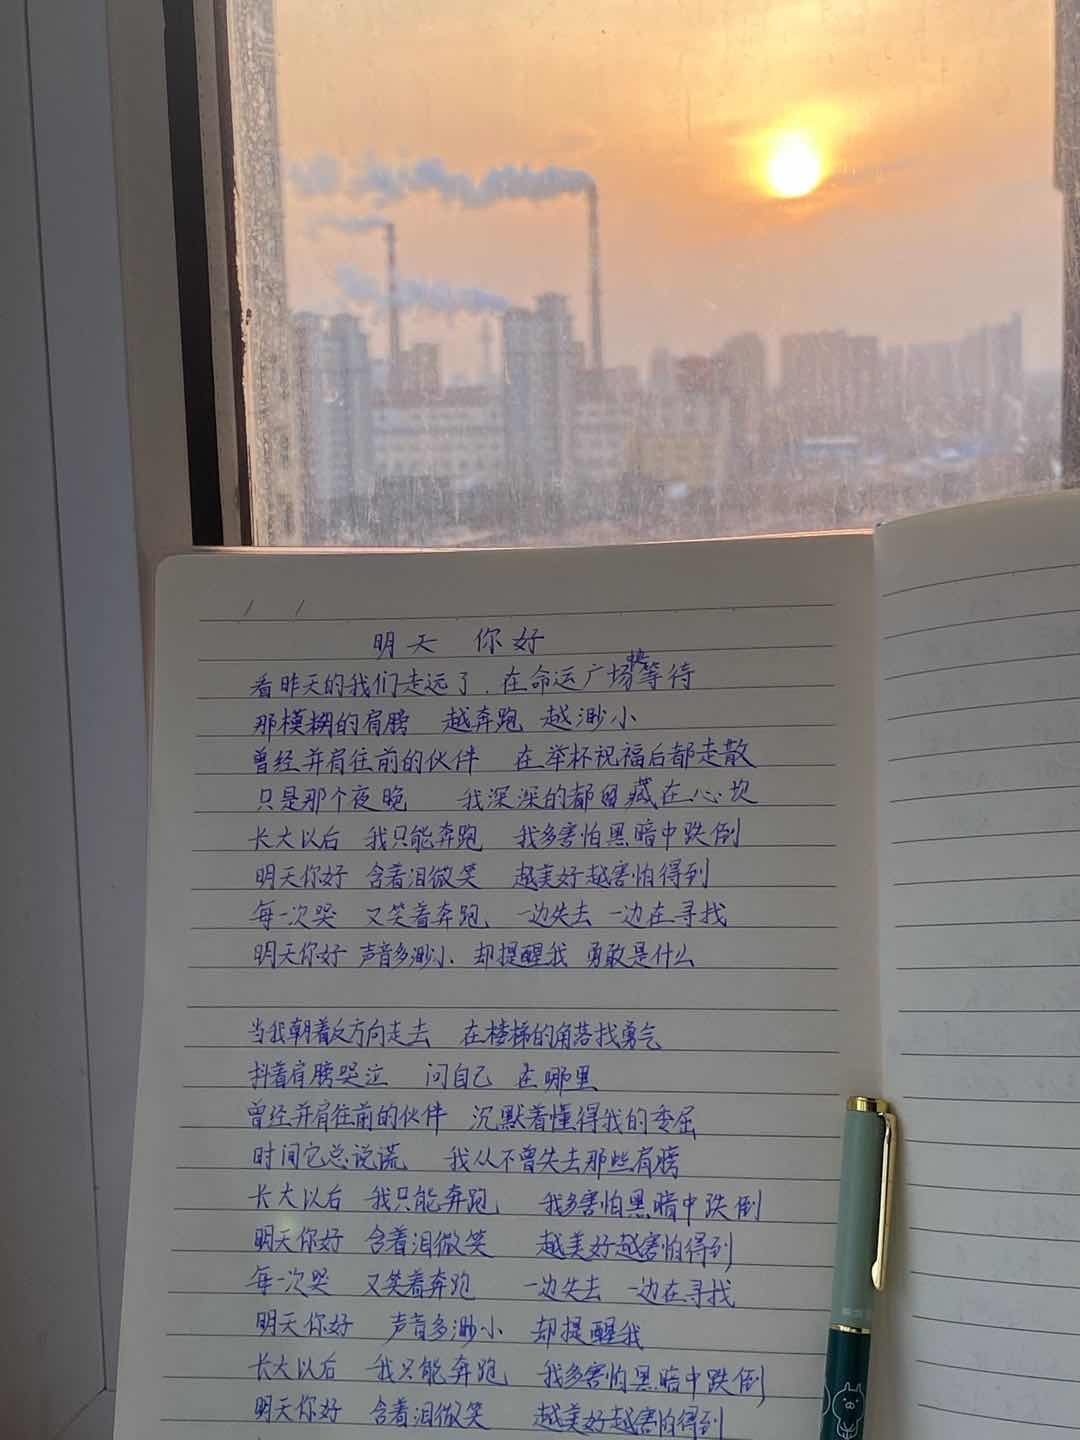 明天 你好
看昨天的我们走远了.在命运广场中央等待
那模糊的肩膀 越奔跑 越渺小
曾经并肩往前的伙伴 在举杯祝福后都走散
只是那个夜晚 我深深的都留藏在心坎
长大以后 我只能奔跑 我多害怕黑暗中跌倒
明天你好 含着泪微笑 越美好越害怕得到
每一次哭 又笑着奔跑 一边失去 一边在寻找
明天你好 声音多渺小 却提醒我 勇敢是什么
当我朝着反方向走去 在楼梯的角落找勇气
抖着肩膀哭泣 问自己 在哪里
曾经并肩往前的伙伴 沉默着懂得我的委屈
时间它总说谎 我从不曾失去那些肩膀
长大以后 我只能奔跑 我多害怕黑暗中跌倒
明天你好 含着泪微笑 越美好越害怕得到
每一次哭 又笑着奔跑 一边失去 一边在寻找
明天你好 声音多渺小 却提醒我
长大以后 我只能奔跑 我多害怕黑暗中跌倒
明天你好 含着泪微笑 越美好越害怕得到